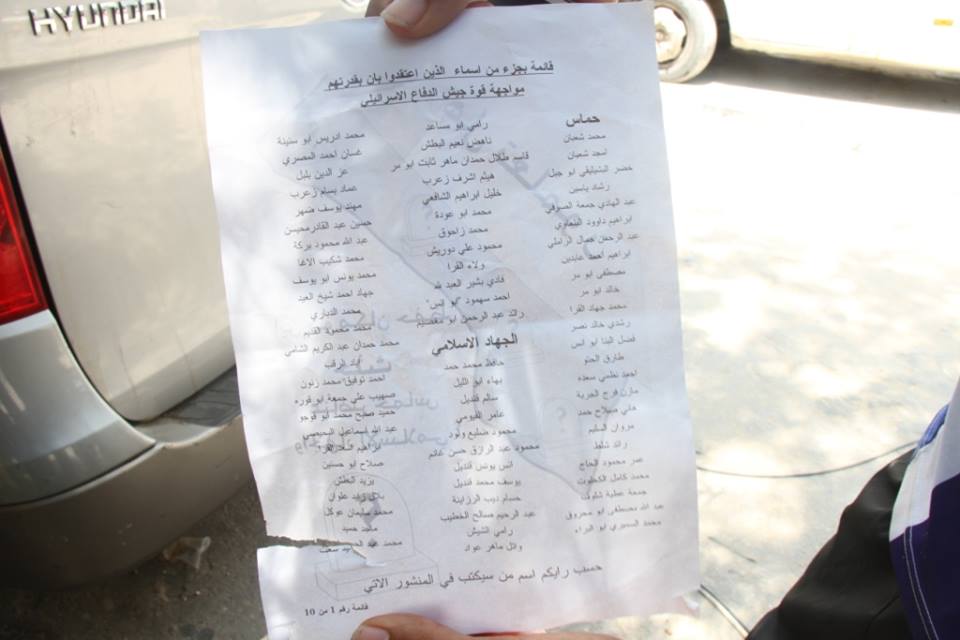 HYUNDAI
قائمة بجزء من اسماء الذين اعتقدوا بان بقدرتهم
مواجهة قوة جيش الدفاع الاسرائيلي
حماس
محمد شعبان
امجد شعبان
خضر البشيليقي ابو جبل
رشاد ياسين
عبد الهادي جمعة الصوفي
ابراهيم داوود البلعاوي
عبد الرحمن جمال الزاملي
ابراهيم أحمد عابدين
مصطفى ابو مر
خالد ابو مر
محمد جهاد القرا
رشدي خالد نصر
فضل البنا ابو انس
طارق الحتو
احمد نظمي سعده
مازن فرج الجربة
هاني صلاح حمد
مروان السليم
رائد شلط
عمر محمود الحاج
محمد كامل الكحلوت
جمعة عطية شلوف
عبد الله مصطفى ابو محروق
محمد السميري ابو البراء
رامي ابو مساعد
ناهض نعيم البطش
قاسم طلال حمدان ماهر ثابت ابو مر
هيثم اشرف زعرب
خليل ابراهيم الشافعي
محمد ابو عودة
محمد زاحوق
محمود علي دوريش
ولاء القرا
فادي بشير العبد لله
احمد سهمود "ابو انس"
رائد عبد الرحمن ابو مغصيب
الجهاد الاسلامي
حافظ محمد حمد
بهاء ابو الليل
سالم قنديل
عامر الفيومي
محمود ولود
محمود عبد الرازق حسن غانم
انس يونس قنديل
يوسف محمد قنديل
حسام ديب الرزاينة
عبد الرحيم صالح الخطيب
رامي الشيش
وائل ماهر عواد
محمد ادريس ابو سنينة
غسان احمد المصري
عز الدين بلبل
عماد بسام زعرب
مهند يوسف ضهر
حسين عبد القادر محيسن
عبد الله محمود بركة
محمد شكيب الاغا
محمد يونس ابو يوسف
جهاد احمد شيخ العيد
محمد الدباري
محمد محمود القديم
محمد حمدان عبد الكريم الشامي
اياد الرقب
احمد توفيق محمد زنون
صهيب علي جمعة ابو قوره
حميد صبح محمد ابو فوجو
عبد الله اسماعيل البحيصي
ابراهيم
صلاح ابو حسنين
يزيد البطش
بلال زايد علوان
محمد سليمان عوكل
ماجد حميد
محمد عبد
حسب رايكم اسم من سيكتب في المنشور الاتي
قائمة رقم 1 من 10